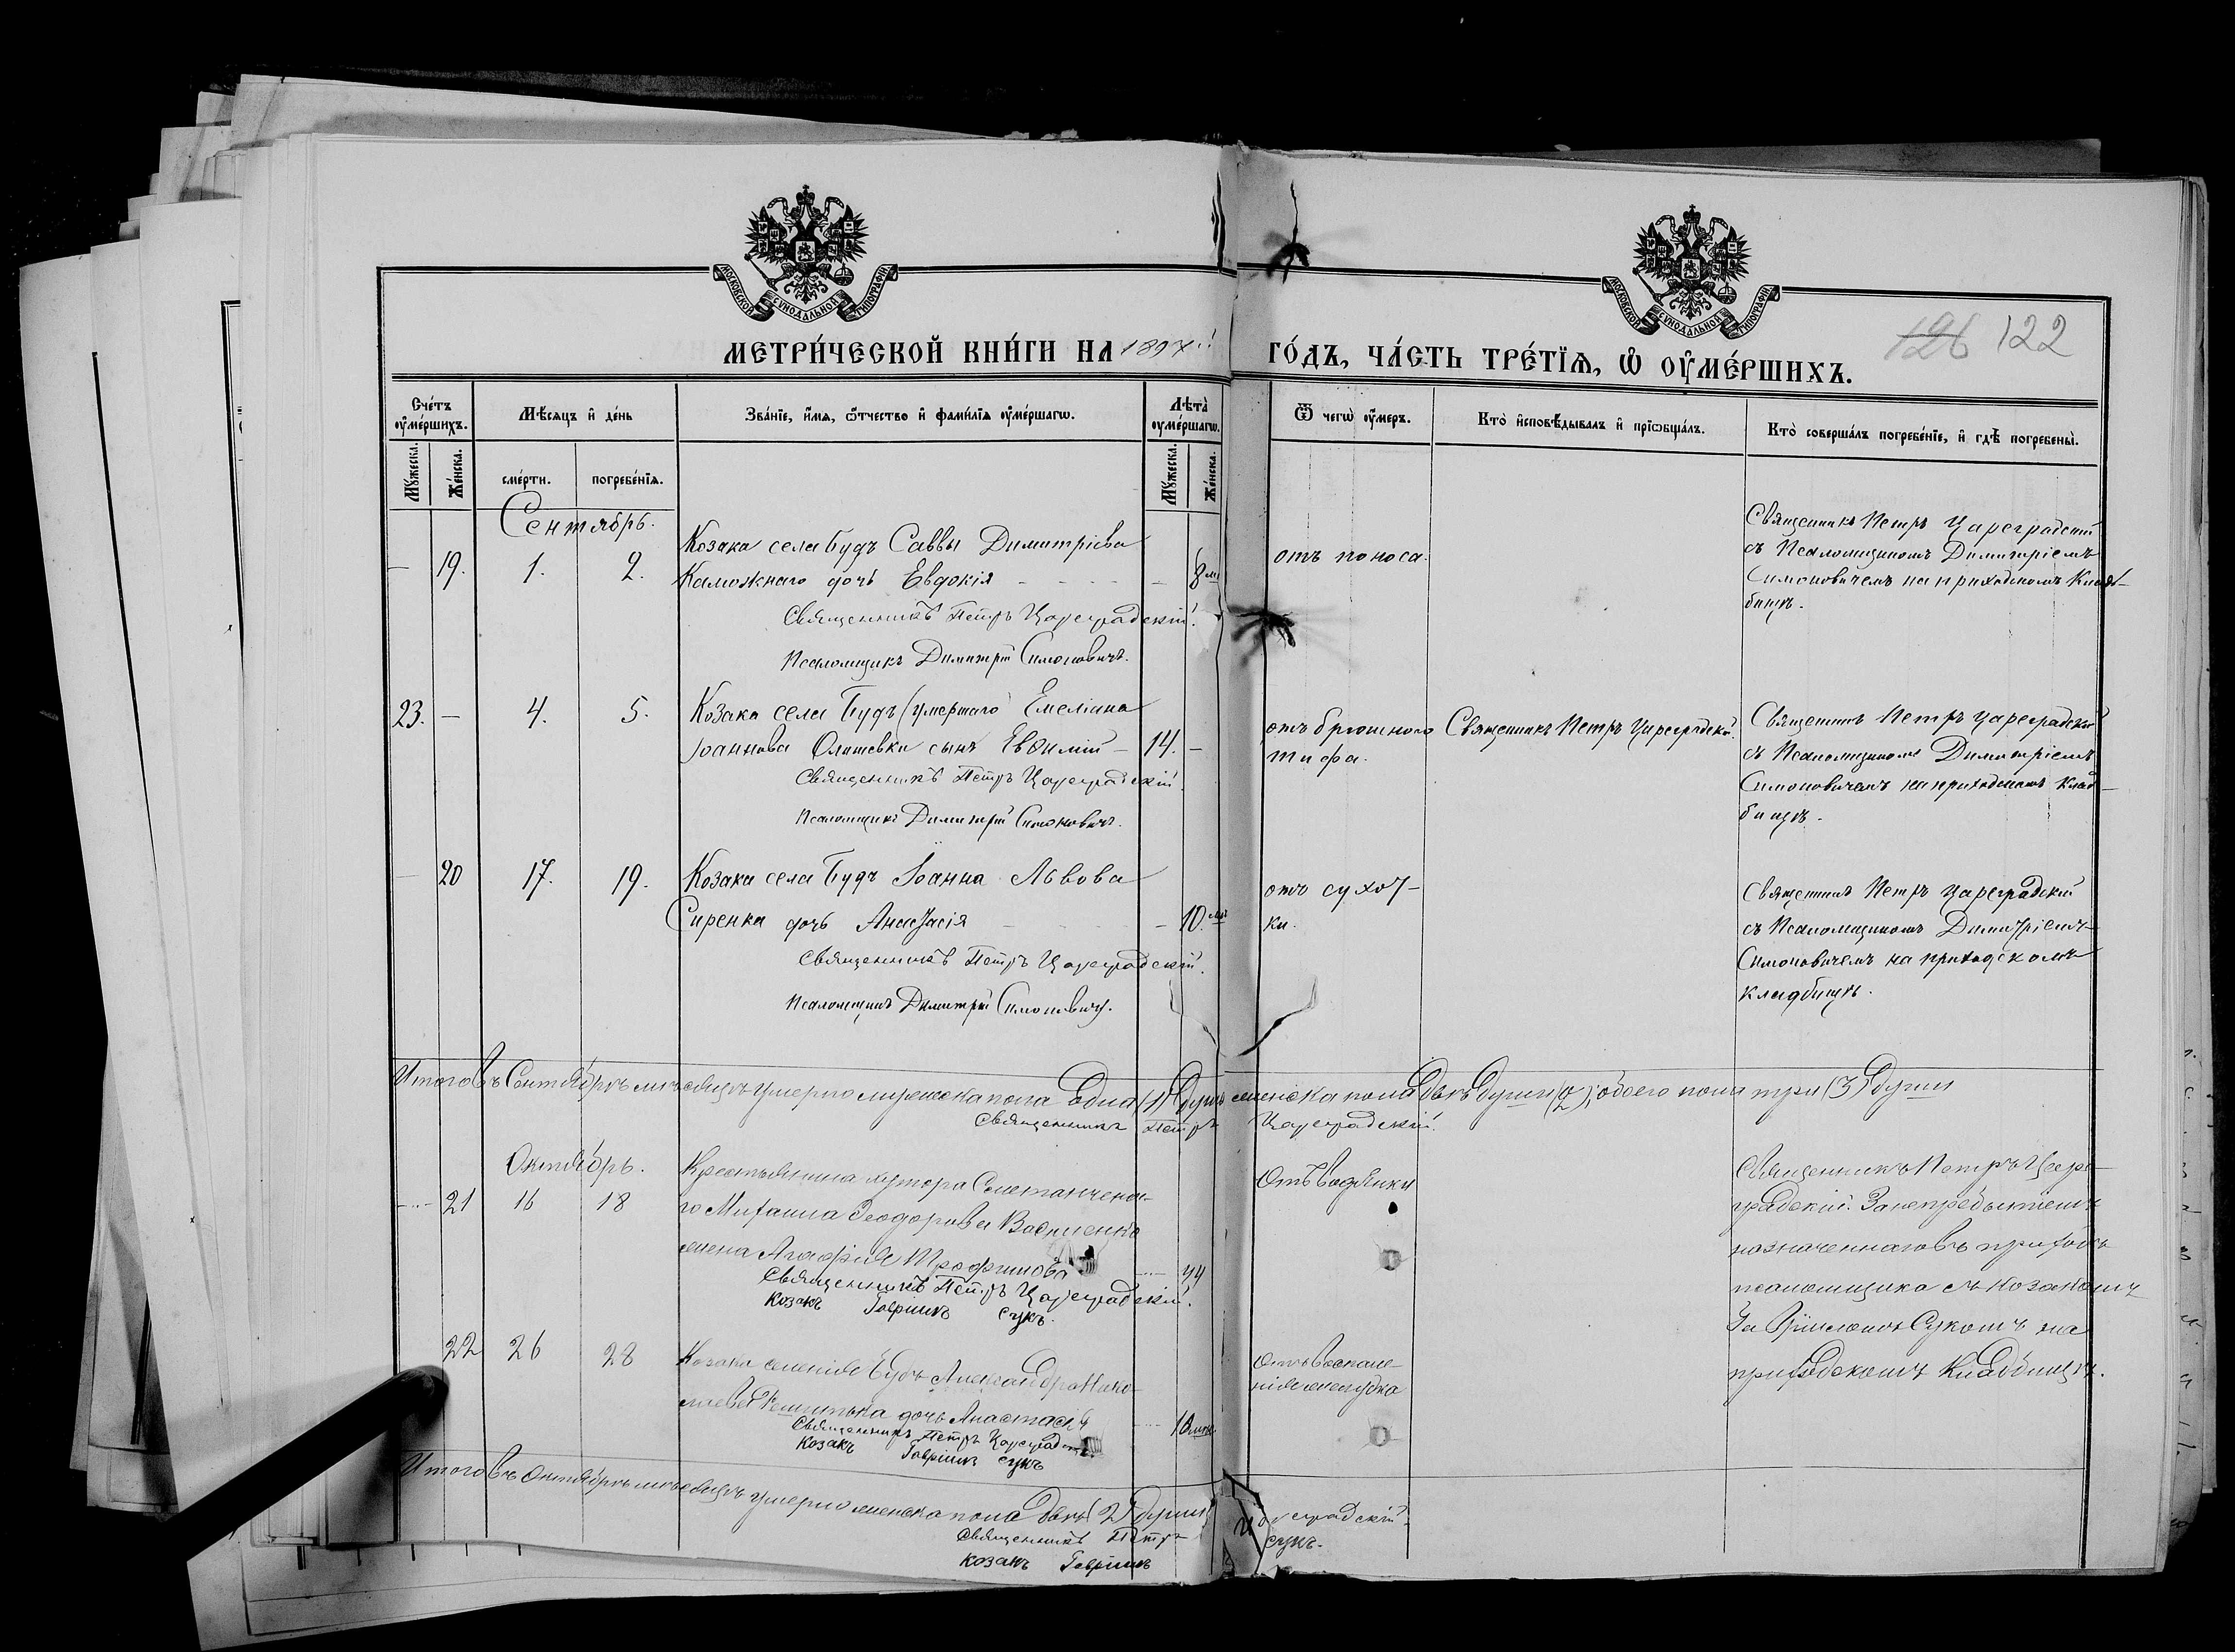 МОСКОВСКОЙ СѴНОДАЛЬНОЙ ТИПОГРАФІИ
МОСКОВСКОЙ СѴНОДАЛЬНОЙ ТИПОГРАФІИ
126 122
МЕТРИ́ЧЕСКОЙ КНИ́ГИ НА 1897й ГО́ДЪ, ЧА́СТЬ ТРЕ́ТІѦ, Ѡ ОУМЕ́РШИХЪ.
Сче́тъ оуме́ршихъ.
Мѣ́сяцъ и де́нь
Зва́нїе, и́мя, ѿтчество и фами́лїя оуме́ршагѡ.
Лѣта̀ оуме́ршагѡ.
Ѿ чегѡ̀ оу́меръ.
Кто̀ исповѣ́дывалъ и прїѡбща́лъ.
Кто̀ соверша́лъ погребе́нїе, и гдѣ̀ погребены̀.
Му́жеска. Же́нска.
сме́рти. погребе́нїя.
Му́жеска. Же́нска.
Сентябрь.
— 19. 1. 2.
Козака села Будъ Саввы Димитріева
Каможнаго дочь Евдокія — 8 м
Священникъ Петръ Цареградскій.
Псаломщикъ Димитрій Симоновичъ.
отъ поноса.
Священникъ Петръ Цареградскій
съ Псаломщикомъ Димитріемъ
Симоновичемъ на приходскомъ Клад-
бищѣ.
23. — 4. 5.
Козака села Будъ (умершаго) Емеліана
Іоаннова сынъ Евѳимій — 14. —
Священникъ Петръ Цареградскій.
Псаломщикъ Димитрій Симоновичъ.
отъ брюшного
тифа.
Священникъ Петръ Цареградскій.
Священникъ Петръ Цареградскій
съ Псаломщикомъ Димитріемъ
Симоновичемъ на приходскомъ клад-
бищѣ.
— 20 17. 19.
Козака села Будъ Іоанна Львова
Сиренка дочь Анастасія — 10. мѣ
Священникъ Петръ Цареградскій.
Псаломщикъ Димитрій Симоновичъ.
отъ сухот-
ки.
Священникъ Петръ Цареградскій
съ Псаломщикомъ Димитріемъ
Симоновичемъ на приходскомъ
кладбищѣ.
Итого въ Сентябрѣ мѣсяцѣ умерло мужеска пола Одна (1) душа женска пола двѣ души (2); обоего пола три (3) души
Священникъ Петръ Цареградскій.
Октябрь.
— 21 16 18
Крестьянина хутора
го Михаила Ѳеодорова
жена Агафія Трофимова — 44
Священникъ Петръ Цареградскій.
Козакъ Гавріилъ Сукъ.
Отъ водянки
Священникъ Петръ Царе-
градскій. За непребытіемъ
назначеннаго въ приходъ
псаломщика съ козакомъ
Гавріиломъ Сукомъ на
приходскомъ Кладбищѣ.
22 26 28
Козака селенія Будъ Александра Нико-
лаева дочь Анастасія — 10 мѣс.
Священникъ Петръ Цареградскій
Козакъ Гавріилъ Сукъ
Отъ воспале-
нія желудка
Итого въ Октябрѣ мѣсяцѣ умерло женска пола двѣ (2) души
Священникъ Петръ Цареградскій.
Козакъ Гавріилъ Сукъ.